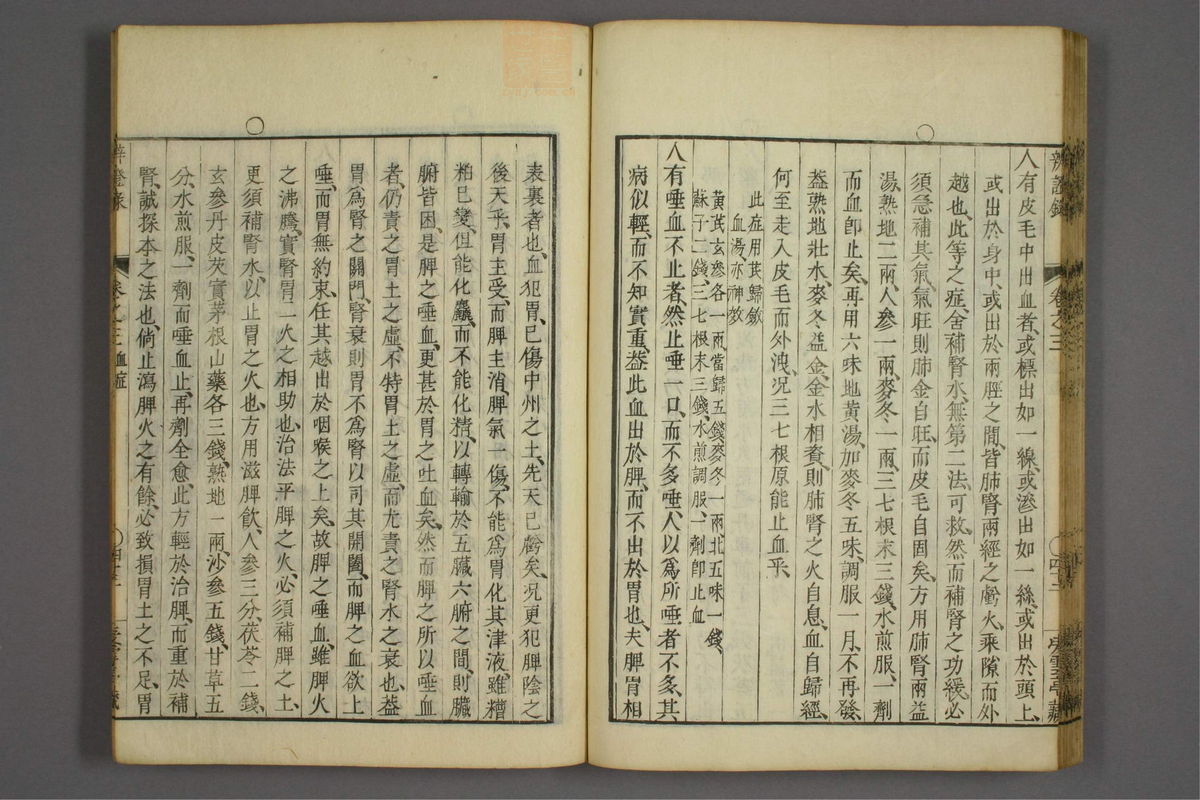 人有皮毛中出血者、或標出如一線、或滲出如一絲、或出於頭上、
或出於身中、或出於兩脛之間、皆肺腎兩經之虧、火乘隙而外
越也、此等之症、舍補腎水、無第二法可救、然而補腎之功緩、必
須急補其氣、氣旺則肺金自旺、而皮毛自固矣、方用肺腎兩益
湯、熟地二兩、人參一兩、麥冬一兩、三七根末三錢、水煎服、一劑
而血卽止矣、再用六味地黃湯、加麥冬五味、調服一月、不再發、
葢熟地壯水、麥冬益金、金水相資、則肺腎之火自息、血自歸經、
何至走入皮毛而外洩、况三七根原能止血乎、
此症用芪歸斂
血湯、亦神效
黃芪玄參各一兩當歸五錢麥冬一兩北五味一錢、
蘇子二錢、三七根末三錢、水煎調服、一劑卽止血
人有唾血不止者、然止唾一口、而不多唾、人以爲所唾者不多、其
病似輕、而不知實重、葢此血出於脾、而不出於胃也、夫脾胃相
表裏者也、血犯胃、已傷中州之土、先天已虧矣、况更犯脾陰之
後天乎、胃主受、而脾主消、脾氣一傷、不能爲胃化其津液、雖糟
粕已變、但能化麤、而不能化精、以轉輸於五臟六腑之間、則臟
腑皆困、是脾之唾血、更甚於胃之吐血矣、然而脾之所以唾血
者、仍責之胃土之虛、不特胃土之虛、而尤責之腎水之衰也、葢
胃爲腎之關門、腎衰則胃不爲腎以司其開闔、而脾之血欲上
唾、而胃無約束、任其越出於咽喉之上矣、故脾之唾血、雖脾火
之沸騰、實腎胃二火之相助也、治法平脾之火、必須補脾之土、
更須補腎水、以止胃之火也、方用滋脾飲、人參三分、茯苓二錢、
玄參丹皮芡實茅根山藥各三錢、熟地一兩、沙參五錢、甘草五
分、水煎服、一劑而唾血止、再劑全愈、此方輕於治脾、而重於補
腎、誠探本之法也、倘止瀉脾火之有餘、必致損胃土之不足、胃
卷之三 血症